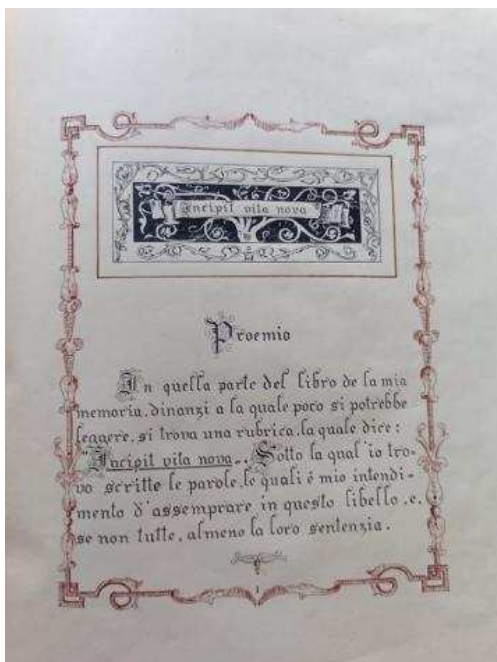 Incipit vita nova
Proemio
In quella parte del libro de la mia
memoria, dinanzi a la quale poco si potrebbe
leggere, si trova una rubrica, la quale dice:
"Incipit vita nova". Sotto la qual'io tro-
vo scritte le parole, le quali é mio intendi-
mento d'assemprare in questo libello, e,
se non tutte, almeno la loro sentenzia.
1